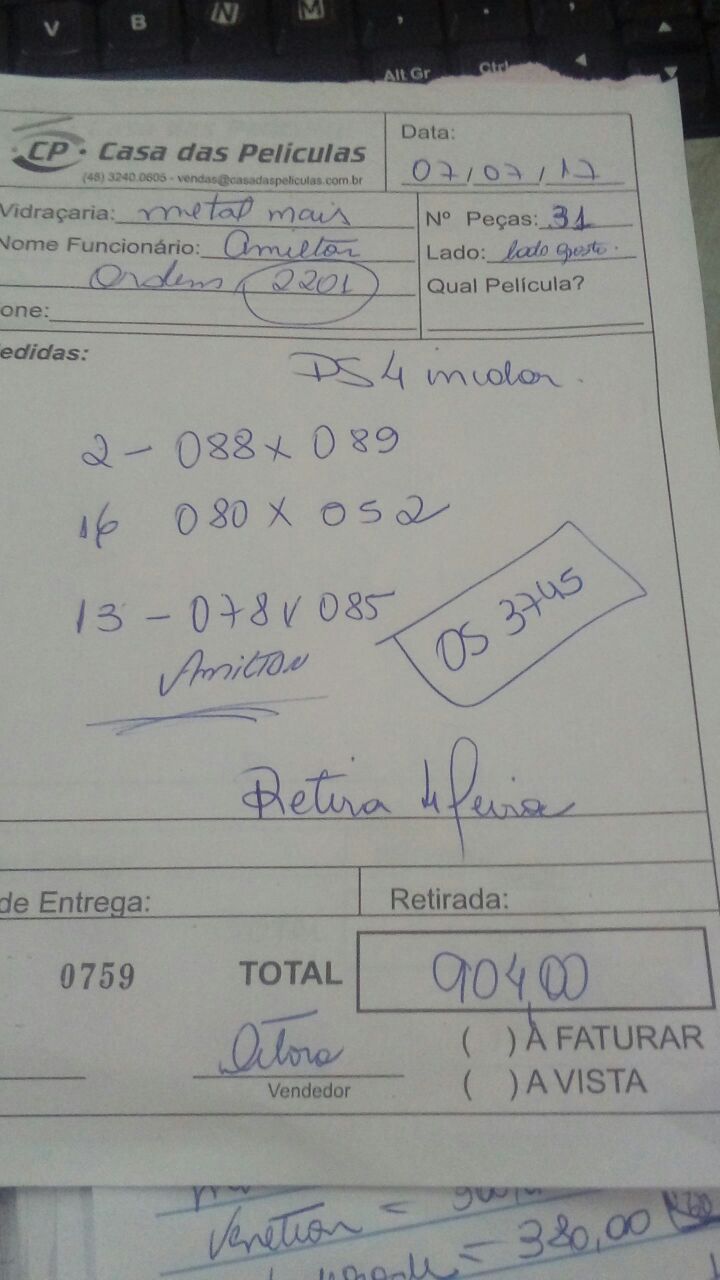 V B N M , . ;
Alt Gr Ctrl
CP · Casa das Películas
(48) 3240.0605 - vendas@casadaspeliculas.com.br
Data:
07/07/17
Vidraçaria: metal mais
Nº Peças: 31
Nome Funcionário: Amilton
Lado: lado oposto.
Ordem 2201
Qual Película?
one:
edidas:
DS4 incolor.
2 - 088 x 089
16 080 x 052
13 - 078 x 085
OS 3745
Amilton
Retira 4 feira
de Entrega:
Retirada:
0759
TOTAL
904,00
( ) A FATURAR
( ) A VISTA
Vendedor
= 380,00